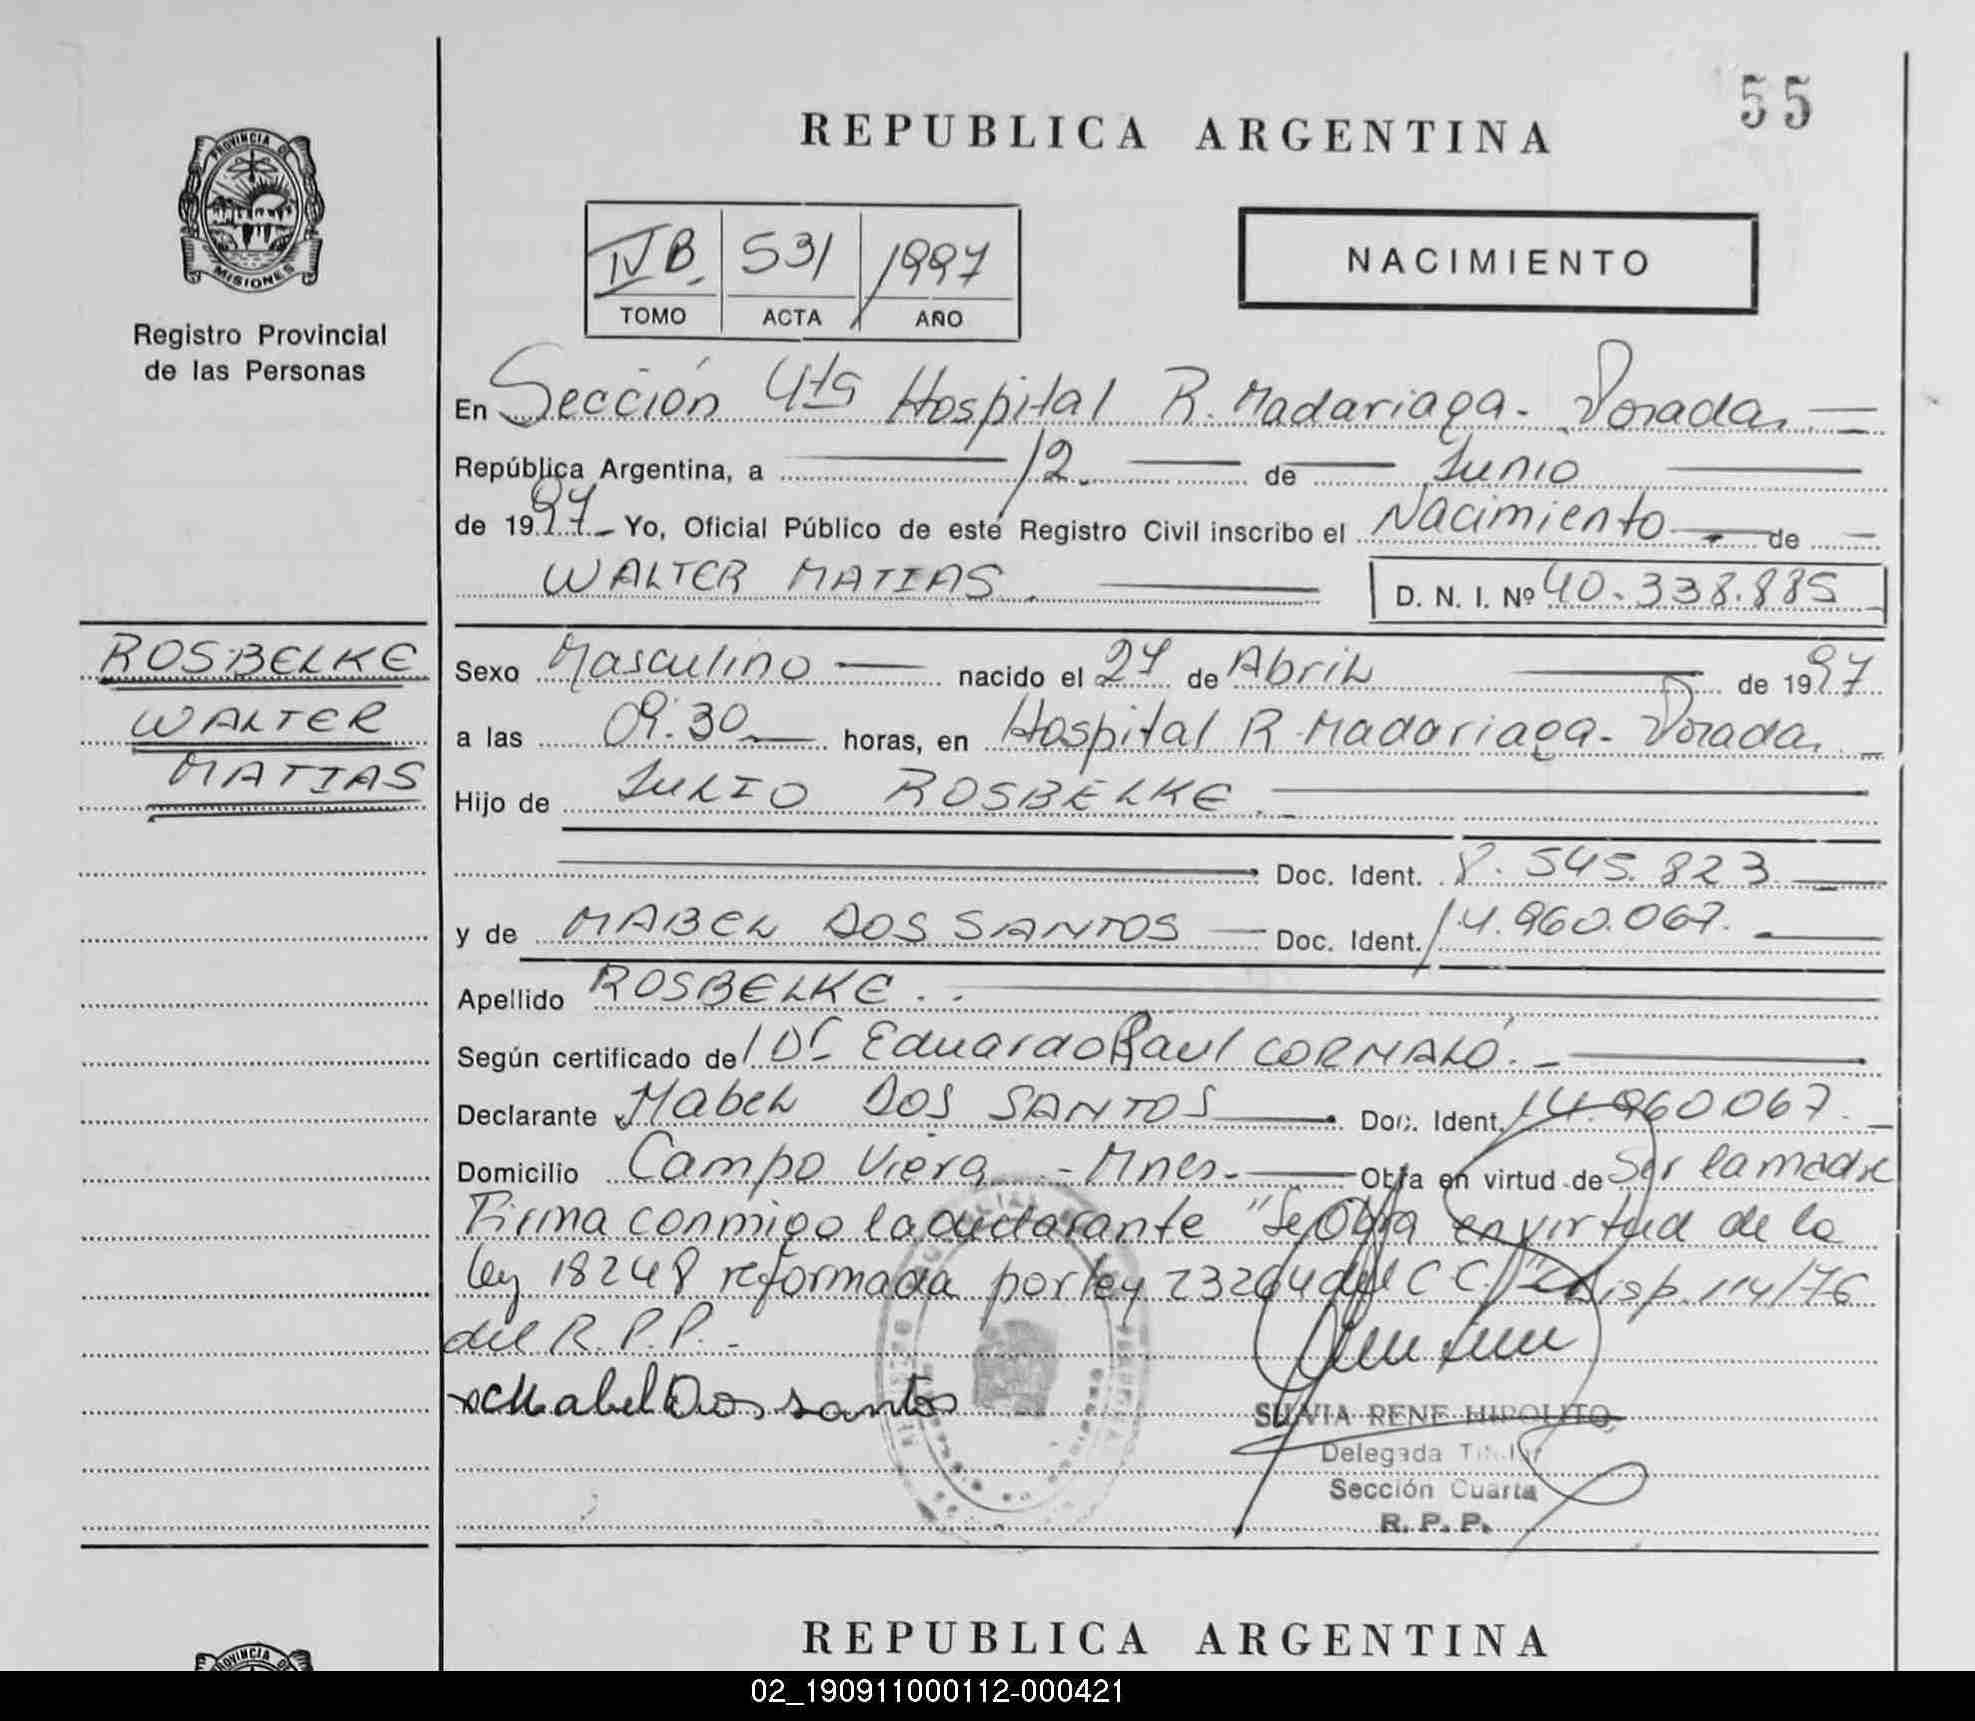 55
REPUBLICA ARGENTINA
PROVINCIA DE
MISIONES
Registro Provincial
de las Personas
IV B. 531 1997
TOMO ACTA AÑO
NACIMIENTO
En Sección 4ta Hospital R. Madariaga - Posadas
República Argentina, a 12 de Junio
de 1997 Yo, Oficial Público de este Registro Civil inscribo el Nacimiento de
WALTER MATIAS. D. N. I. Nº 40.338.885
ROSBELKE
WALTER
MATIAS
Sexo Masculino nacido el 27 de Abril de 1997
a las 09:30 horas, en Hospital R. Madariaga - Posadas
Hijo de JULIO ROSBELKE.
Doc. Ident. 8.545.823
y de MABEL DOS SANTOS Doc. Ident. 14.960.067.
Apellido ROSBELKE.
Según certificado del Dr Eduardo Raul CORMALÓ.
Declarante Mabel DOS SANTOS Doc. Ident. 14.960067.
Domicilio Campo Viera - Mnes. Obra en virtud de Ser la madre
Firma conmigo la declarante "Se Obra en virtud de la
ley 18248 reformada por ley 23264 del C C." Disp. 114/76
del R. P. P.
Mabel Dos santos
SILVIA RENE HIPOLITO
Delegada Titular
Sección Cuarta
R. P. P.
REPUBLICA ARGENTINA
02_190911000112-000421